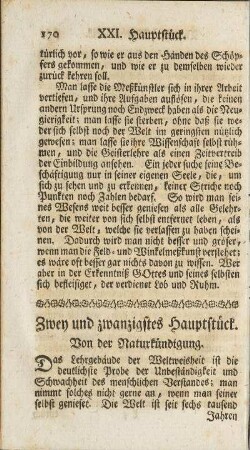 170 XXI. Hauptstück.
türlich vor, so wie er aus den Händen des Schöp-
fers gekommen, und wie er zu demselben wieder
zurück kehren soll.
Man lasse die Meßkünstler sich in ihrer Arbeit
vertiefen, und ihre Aufgaben auflösen, die keinen
andern Ursprung noch Endzweck haben als die Neu-
gierigkeit: man lasse sie sterben, ohne daß sie we-
der sich selbst noch der Welt im geringsten nützlich
gewesen: man lasse sie ihre Wissenschaft selbst rüh-
men, und die Geisterlehre als einen Zeitvertreib
der Einbildung ansehen. Ein jeder suche seine Be-
schäftigung nur in seiner eigenen Seele, die, um
sich zu sehen und zu erkennen, keiner Striche noch
Punkten noch Zahlen bedarf. So wird man sei-
nes Wesens weit besser geniesen als alle Gelehr-
ten, die weiter von sich selbst entfernet leben, als
von der Welt, welche sie verlassen zu haben schei-
nen. Dadurch wird man nicht besser und gröser,
wenn man die Feld- und Winkelmeßkunst verstehet:
es wäre oft besser gar nichts davon zu wissen. Wer
aber in der Erkenntniß GOttes und seines selbsten
sich befleisiget, der verdienet Lob und Ruhm.
Zwey und zwanzigstes Hauptstück.
Von der Naturkündigung.
Das Lehrgebäude der Weltweisheit ist die
deutlichste Probe der Unbeständigkeit und
Schwachheit des menschlichen Verstandes; man
nimmt solches nicht gerne an, wenn man seiner
selbst genieset. Die Welt ist seit sechs tausend
Jahren